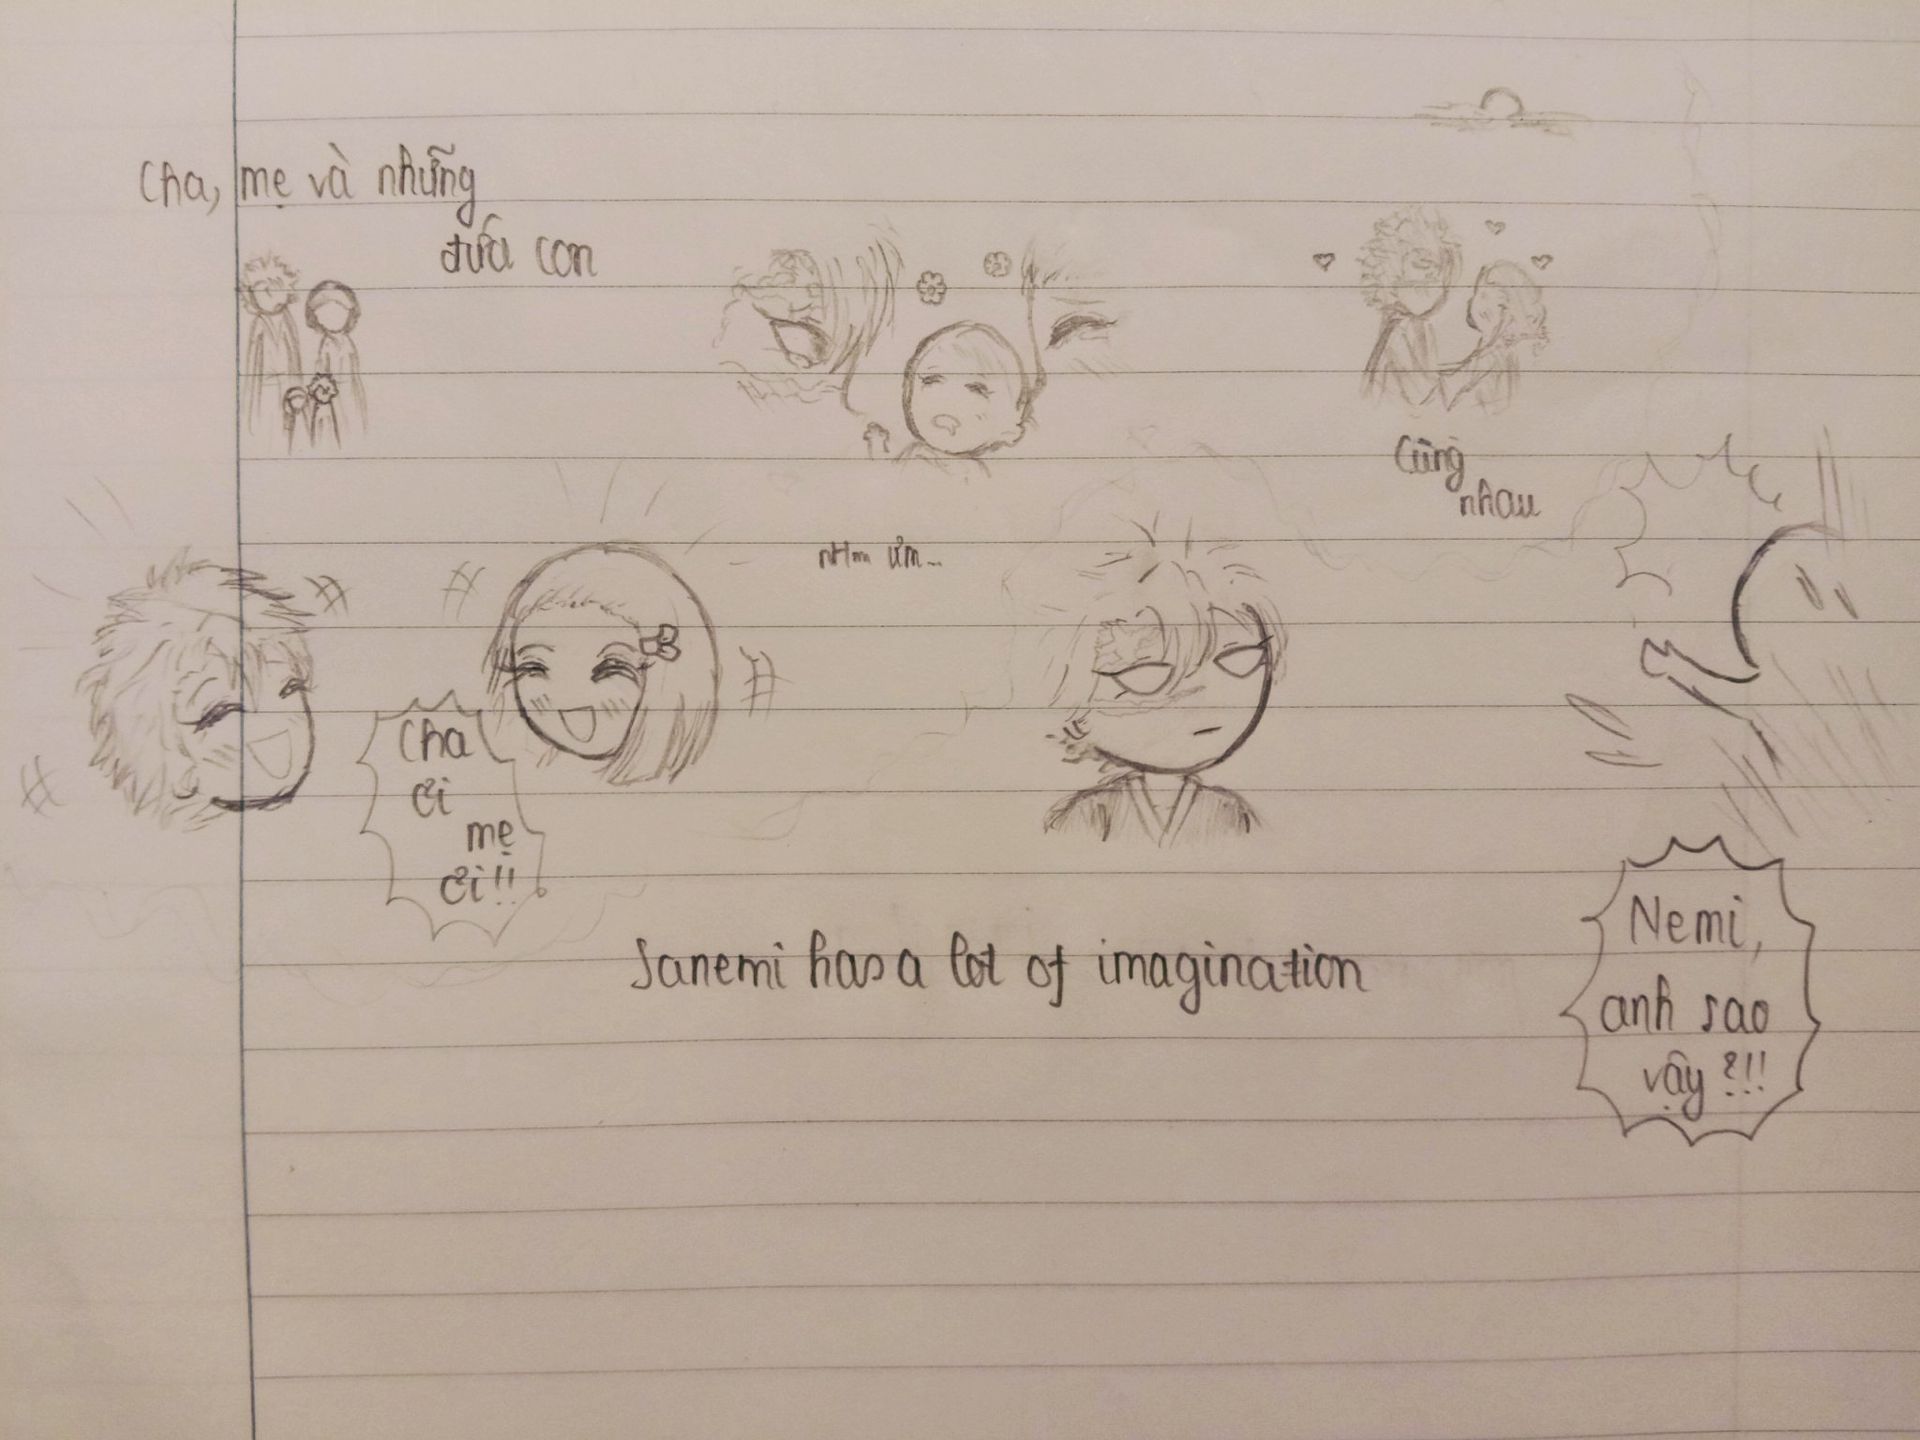 Cha, mẹ và những
đứa con
Cùng
nhau
ưm...
Cha
ơi
mẹ
ơi!!
Sanemi has a lot of imagination
Nemi,
anh sao
vậy?!!